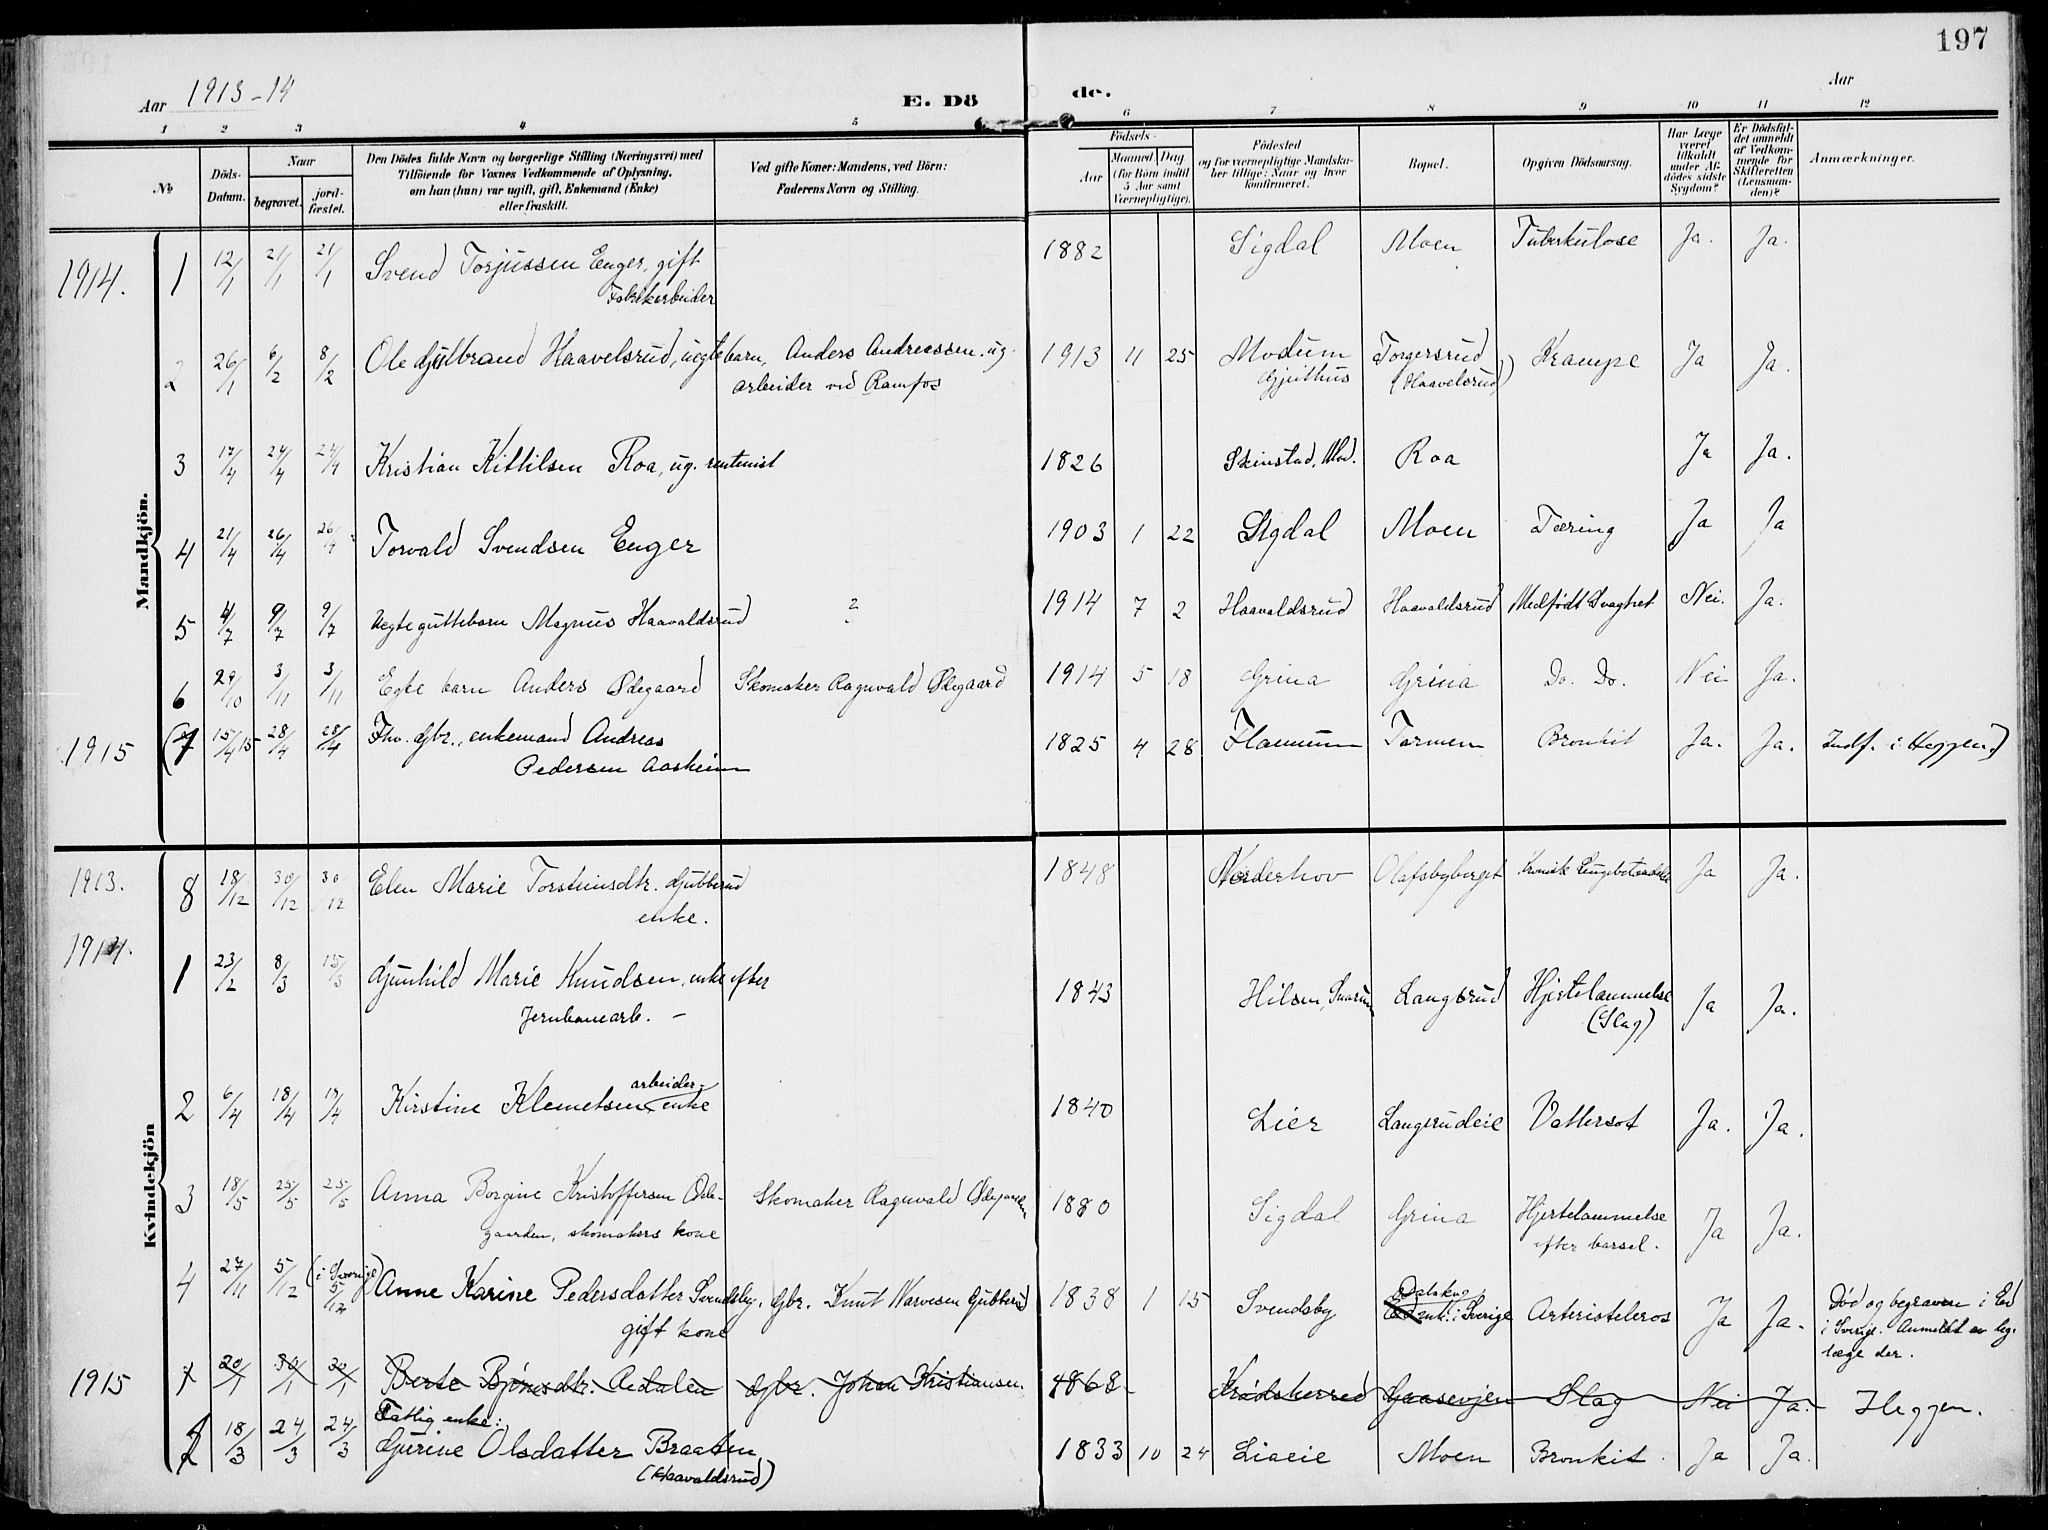 197
Aar 1913-14 E. Dö de. Aar
1 2 3 4 5 6 7 8 9 10 11 12
№
Döds-Datum.
Naar
begravet.
jordfæstet.
Den Dödes fulde Navn og borgerlige Stilling (Næringsvei) med
Tilföiende for Voxnes Vedkommende af Oplysning,
om han (hun) var ugift, gift, Enkemand (Enke)
eller fraskilt.
Ved gifte Koner: Mandens, ved Börn:
Faderens Navn og Stilling.
Födsels-
Aar
Maaned Dag
(for Börn indtil
5 Aar samt
Værnepligtige).
Födested
og for værnepligtige Mandskaber tillige: Naar og hvor
konfirmeret.
Bopæl.
Opgiven Dödsaarsag.
Har Læge
været
tilkaldt
under Afdödes sidste
Sygdom?
Er Dödsfaldet anmeldt
af Vedkommende for
Skifteretten
(Lensmanden)?
Anmærkninger.
Mandkjön.
1914. 1 12/1 21/1 21/1 Svend Torjussen Enger, gift 1882 Sigdal Moen Tuberkulose Ja. Ja.
Fabrikarbeider
2 26/1 6/2 8/2 Ole Gulbrand Haavelsrud, uegte barn, Anders Andreassen, ug. 1913 11 25 Modum Torgersrud Krampe Ja Ja.
arbeider ved Ramfos Gjeithus (Haavelsrud)
3 17/4 24/4 24/4 Kristian Kittilsen Roa, ug. rentenist 1826 Skinstad, Mod. Roa Ja Ja.
4 21/4 26/4 26/4 Torvald Svendsen Enger 1903 1 22 Sigdal Moen Tæring Ja Ja
5 4/7 9/7 9/7 Uegte guttebarn Magnus Haavaldsrud ? 1914 7 2 Haavaldsrud Haavaldsrud Medfödt Svaghet Nei. Ja.
6 29/10 3/11 3/11 Egte barn Anders Ødegaard Skomaker Ragnvald Ødegaard 1914 5 18 Grina Grina Do. Do. Nei Ja.
1915 (7 15/4 15 28/4 28/4 Fhv. Gbr., enkemand Andreas 1825 4 28 Flannum Tormen Bronkit Ja. Ja. Indf. i Heggen)
Pedersen Aasheim
Kvindekjön
1913. 8 18/12 30/12 30/12 Elen Marie Torsteinsdtr. Gubberud 1848 Norderhov Olafsbyberget Kronisk Ja Ja.
enke.
1914. 1 23/2 8/3 15/3 Gunhild Marie Knudsen, enke efter 1843 Hilsen, Snarum Langsrud Hjertelammelse Ja Ja.
Jernbanearb. – (Slag)
2 6/4 18/4 19/4 Kirstine Klemetsen arbeider-enke 1840 Lier Langsrudeie Vattersot Ja. Ja.
3 18/5 25/5 25/5 Anna Borgine Kristoffersen Øde- Skomaker Ragnvald Ødegaarden 1880 Sigdal Grina Hjertelammelse Ja Ja.
gaarden, skomakers kone efter barsel.
4 27/11 5/12 (i Sverige) 5/12 Anne Karine Pedersdatter Svendsby, Gbr. Knut Narvesen Gubberud 1838 1 15 Svendsby Dalskog i Sverige Arteristeleros Ja Ja. Død og begraven i Ed
gift kone i Sverige. Anmeldt av leg.
læge der.
1915 1 20/1 30/1 30/1 Berte Bjørnsdtr. Aadalen Gbr. Johan Kristiansen 1868 Krødsherred Gaasevjen Slag Nei Ja. Heggen.
Fattig enke:
1 18/3 24/3 24/3 Gurine Olsdatter Braaten 1833 10 24 Liaeie Moen Bronkit Ja Ja.
(Haavaldsrud)